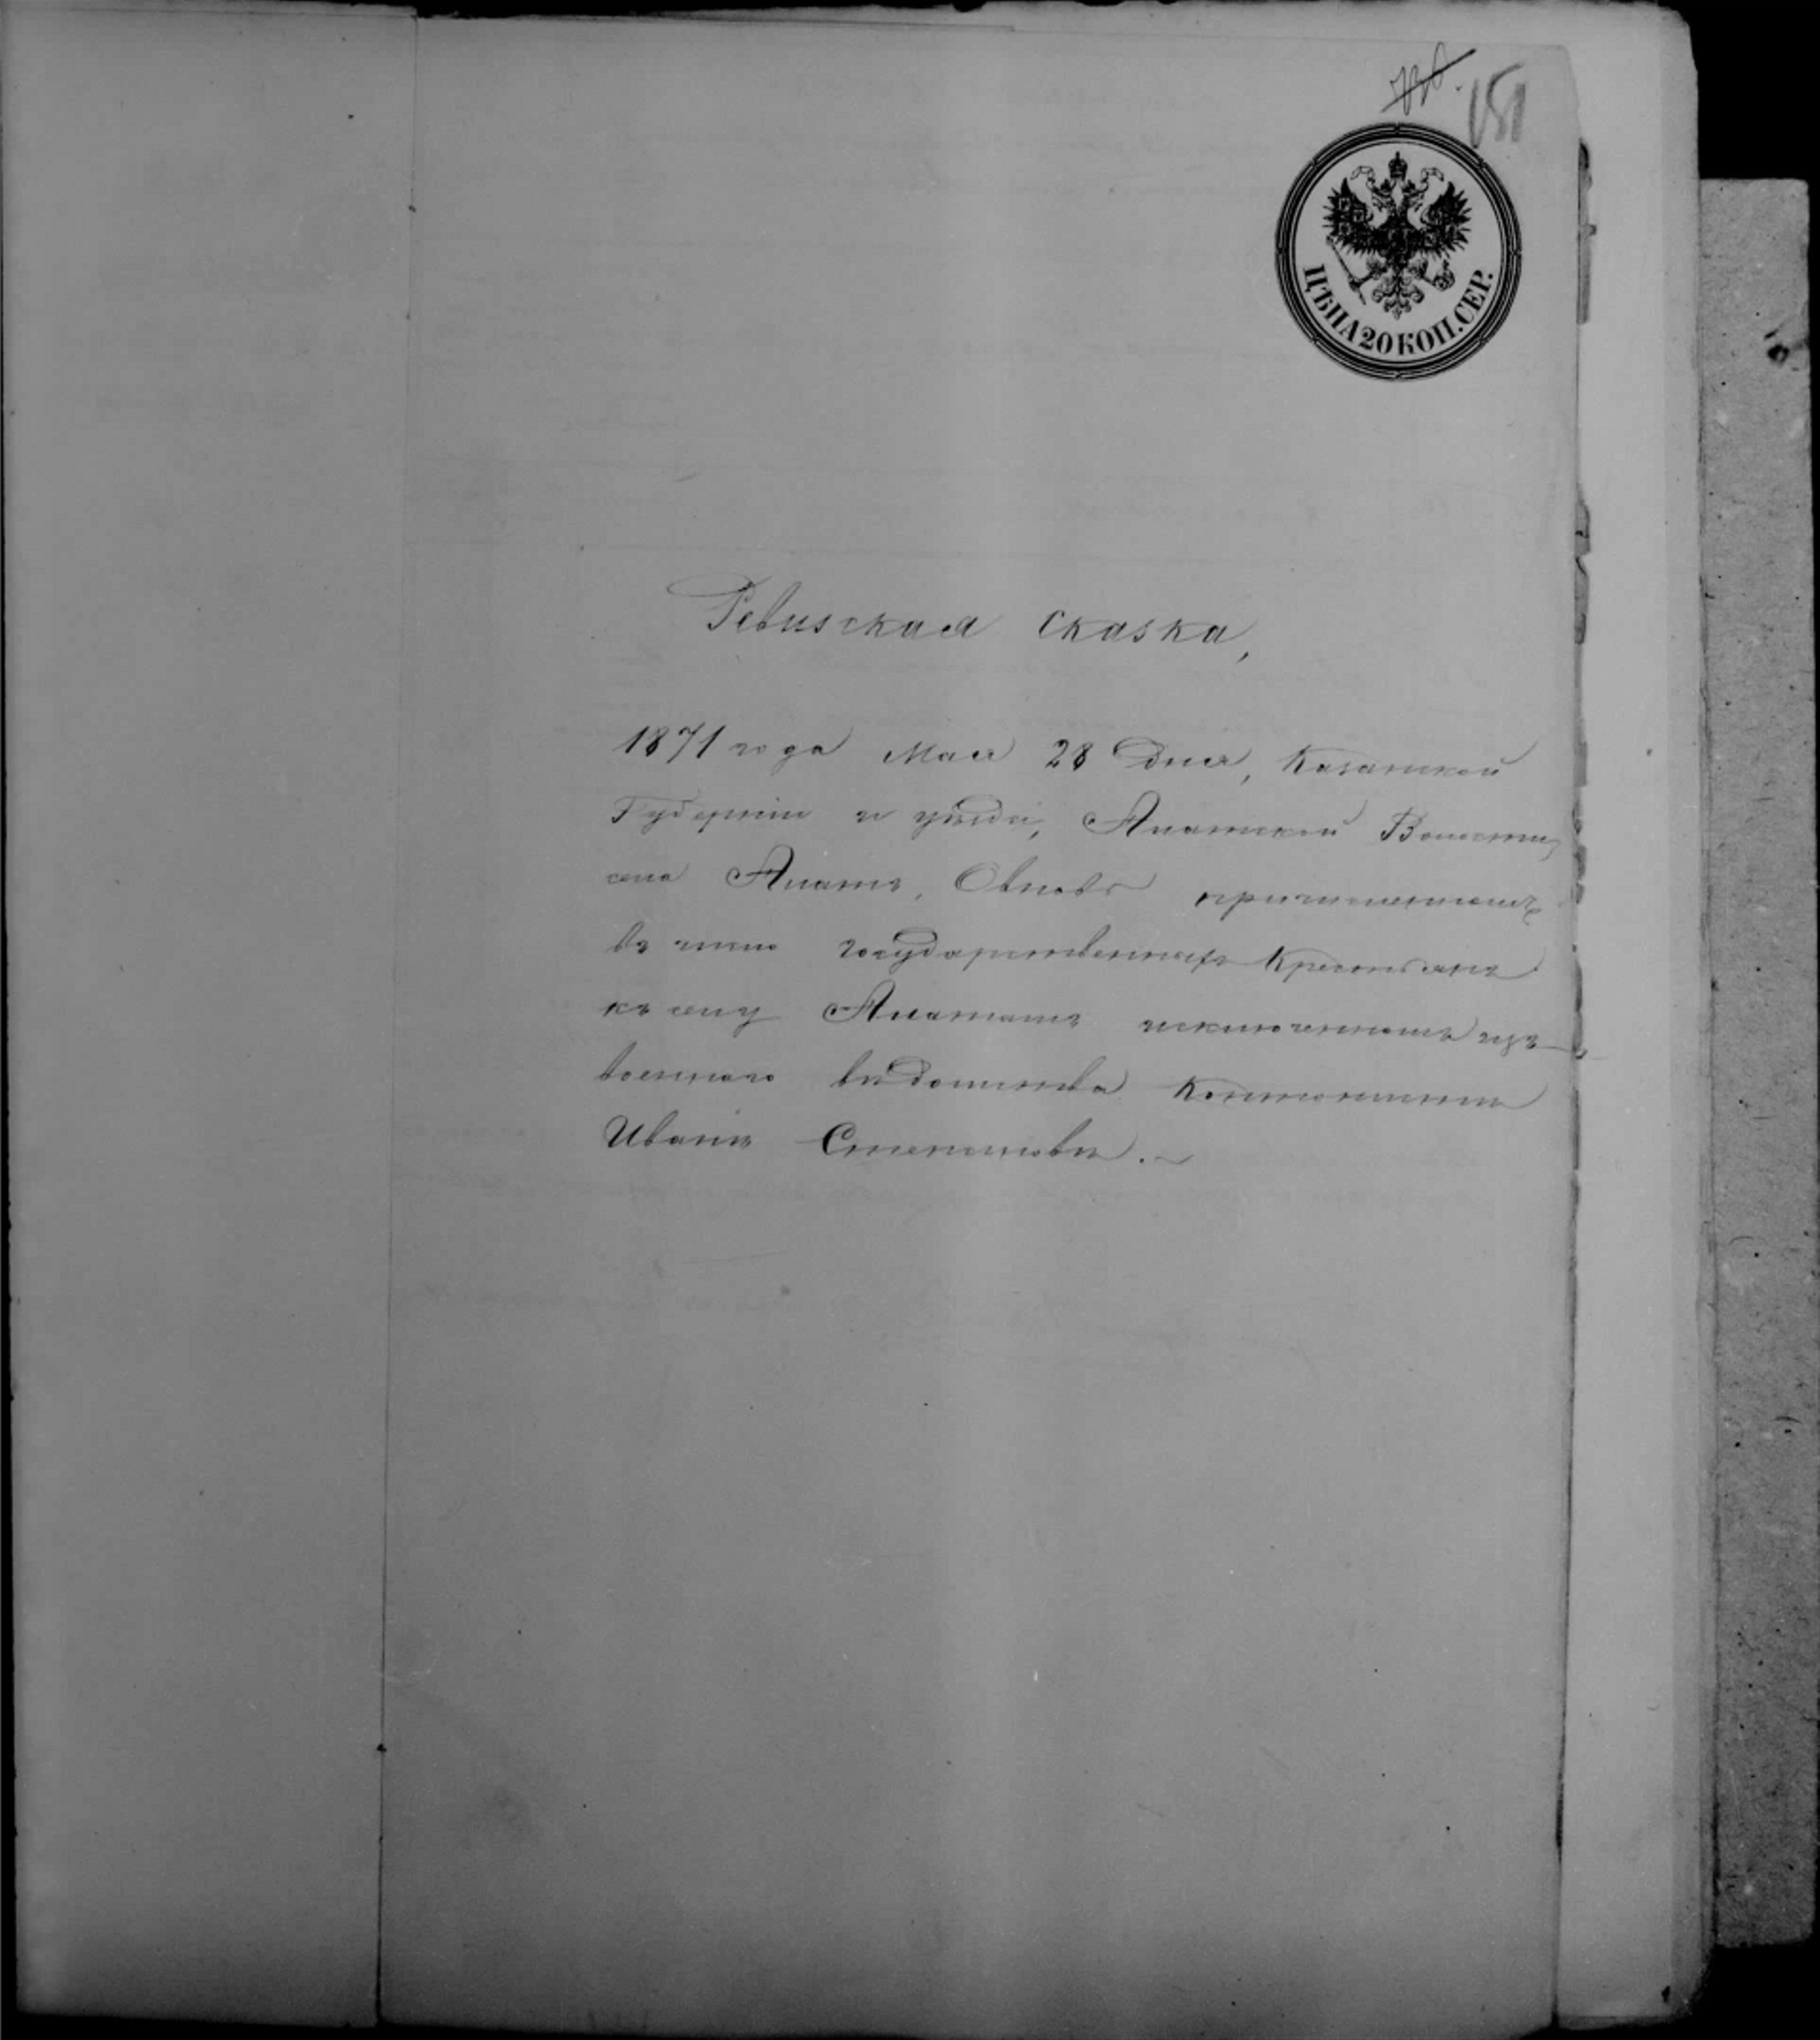 151
ЦѢНА 20 КОП. СЕР.
Ревизская сказка,
1871 года Мая 28 дня, Казанской
Губерніи и уѣзда, Алатской Волости,
села Алатъ, О вновь причисленномъ
въ число государственныхъ Крестьянъ
къ селу Алатамъ исключенномъ изъ
военнаго вѣдомства Кантонистѣ
Иванѣ Степановѣ.